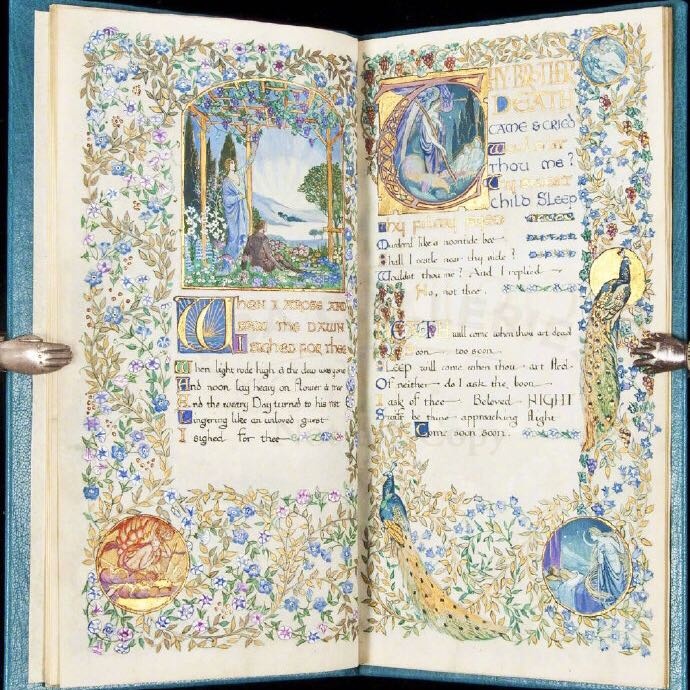 WHEN I AROSE AND
SAW THE DAWN
I SIGHED FOR THEE
When light rode high & the dew was gone
And noon lay heavy on flower & tree
And the weary Day turned to his rest
Lingering like an unloved guest
I sighed for thee
THY BROTHER
DEATH
CAME & CRIED
Wouldst
thou me?
Thy sweet
child Sleep
Thy filmy eyed
Murmured like a noontide bee
Shall I nestle near thy side?
Wouldst thou me? And I replied
No, not thee.
will come when thou art dead
Soon too soon.
Sleep will come when thou art fled.
Of neither do I ask the boon
I ask of thee Beloved NIGHT
Swift be thine approaching flight
Come soon soon.